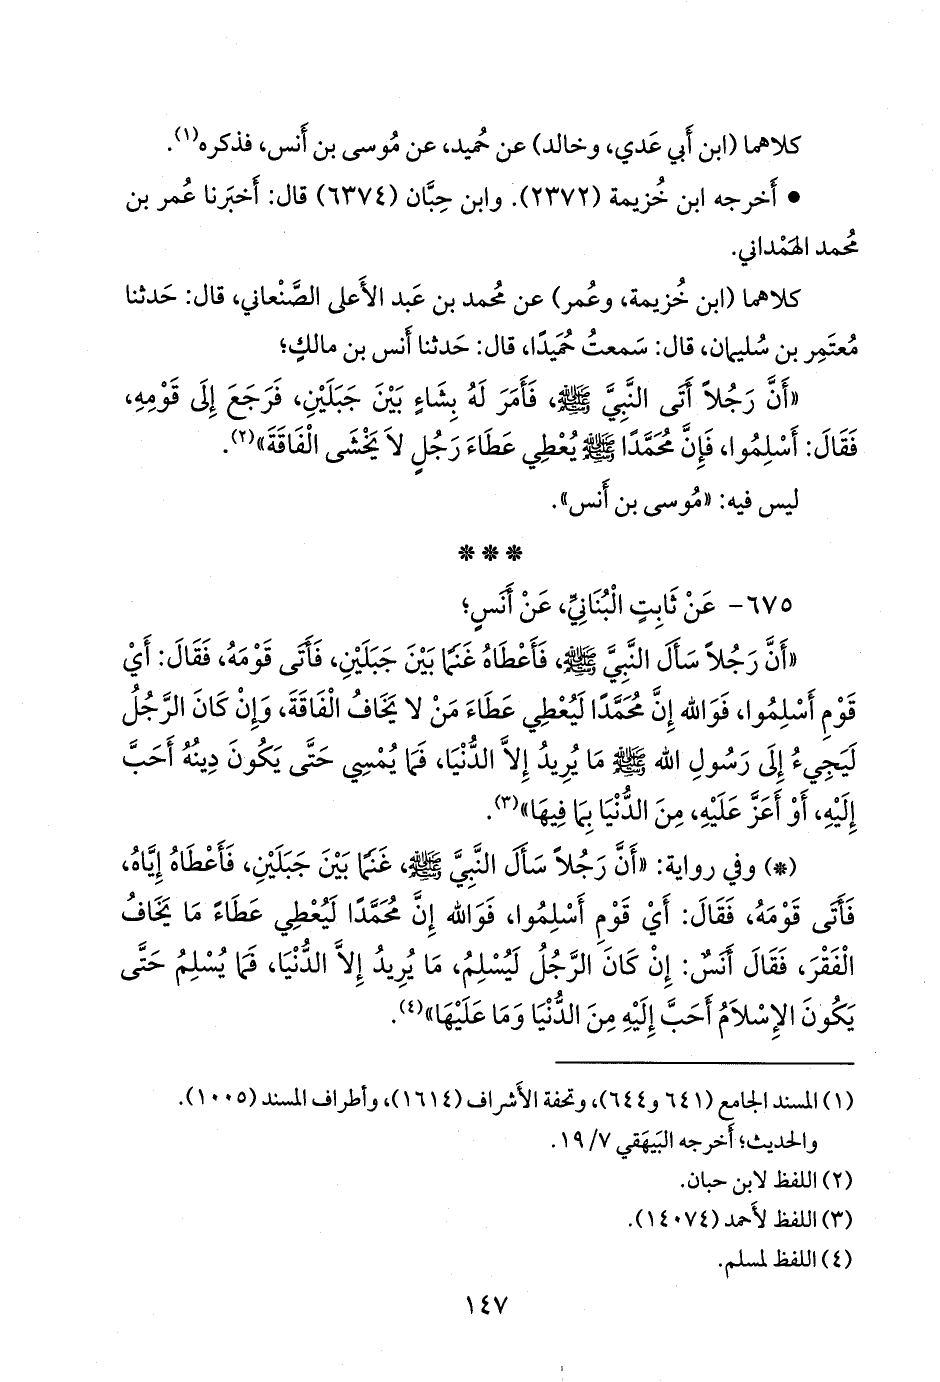 كلاهما (ابن أَبي عَدي، وخالد) عن حُميد، عن مُوسى بن أَنس، فذكره(١).
• أَخرجه ابن خُزيمة (٢٣٧٢). وابن حِبَّان (٦٣٧٤) قال: أَخبَرنا عُمر بن
مُحمد الهَمْداني.
كلاهما (ابن خُزيمة، وعُمر) عن مُحمد بن عَبد الأَعلى الصَّنْعاني، قال: حَدثنا
مُعتَمِر بن سُليمان، قال: سَمعتُ حُمَيدًا، قال: حَدثنا أَنس بن مالكٍ؛
«أَنَّ رَجُلاً أَتَى النَّبِيَّ ﷺ، فَأَمَرَ لَهُ بِشَاءٍ بَيْنَ جَبَلَيْنِ، فَرَجَعَ إِلَى قَوْمِهِ،
فَقَالَ: أَسْلِمُوا، فَإِنَّ مُحَمَّدًا ﷺ يُعْطِي عَطَاءَ رَجُلٍ لاَ يَخْشَى الْفَاقَةَ»(٢).
ليس فيه: «مُوسى بن أَنس».
* * *
٦٧٥- عَنْ ثَابِتٍ الْبُنَانِيِّ، عَنْ أَنَسٍ؛
«أَنَّ رَجُلاً سَأَلَ النَّبِيَّ ﷺ، فَأَعْطَاهُ غَنَمًا بَيْنَ جَبَلَيْنِ، فَأَتَى قَوْمَهُ، فَقَالَ: أَيْ
قَوْمِ أَسْلِمُوا، فَوَالله إِنَّ مُحَمَّدًا لَيُعْطِي عَطَاءَ مَنْ لا يَخَافُ الْفَاقَةَ، وَإِنْ كَانَ الرَّجُلُ
لَيَجِيءُ إِلَى رَسُولِ الله ﷺ مَا يُرِيدُ إِلاَّ الدُّنْيَا، فَمَا يُمْسِي حَتَّى يَكُونَ دِينُهُ أَحَبَّ
إِلَيْهِ، أَوْ أَعَزَّ عَلَيْهِ، مِنَ الدُّنْيَا بِمَا فِيهَا»(٣).
(*) وفي رواية: «أَنَّ رَجُلاً سَأَلَ النَّبِيَّ ﷺ، غَنَمًا بَيْنَ جَبَلَيْنِ، فَأَعْطَاهُ إِيَّاهُ،
فَأَتَى قَوْمَهُ، فَقَالَ: أَيْ قَوْمِ أَسْلِمُوا، فَوَالله إِنَّ مُحَمَّدًا لَيُعْطِي عَطَاءً مَا يَخَافُ
الْفَقْرَ، فَقَالَ أَنَسٌ: إِنْ كَانَ الرَّجُلُ لَيُسْلِمُ، مَا يُرِيدُ إِلاَّ الدُّنْيَا، فَمَا يُسْلِمُ حَتَّى
يَكُونَ الإِسْلاَمُ أَحَبَّ إِلَيْهِ مِنَ الدُّنْيَا وَمَا عَلَيْهَا»(٤).
(١) المسند الجامع (٦٤١ و٦٤٤)، وتحفة الأَشراف (١٦١٤)، وأطراف المسند (١٠٠٥).
والحديث؛ أَخرجه البَيهَقي ٧/ ١٩.
(٢) اللفظ لابن حبان.
(٣) اللفظ لأَحمد (١٤٠٧٤).
(٤) اللفظ لمسلم.
١٤٧